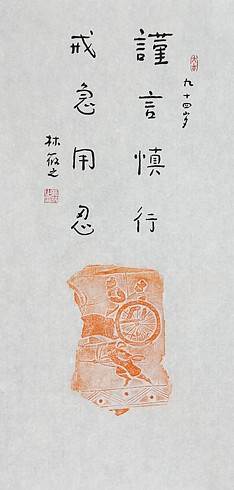 九十四岁
謹言慎行
戒急用忍
林筱之